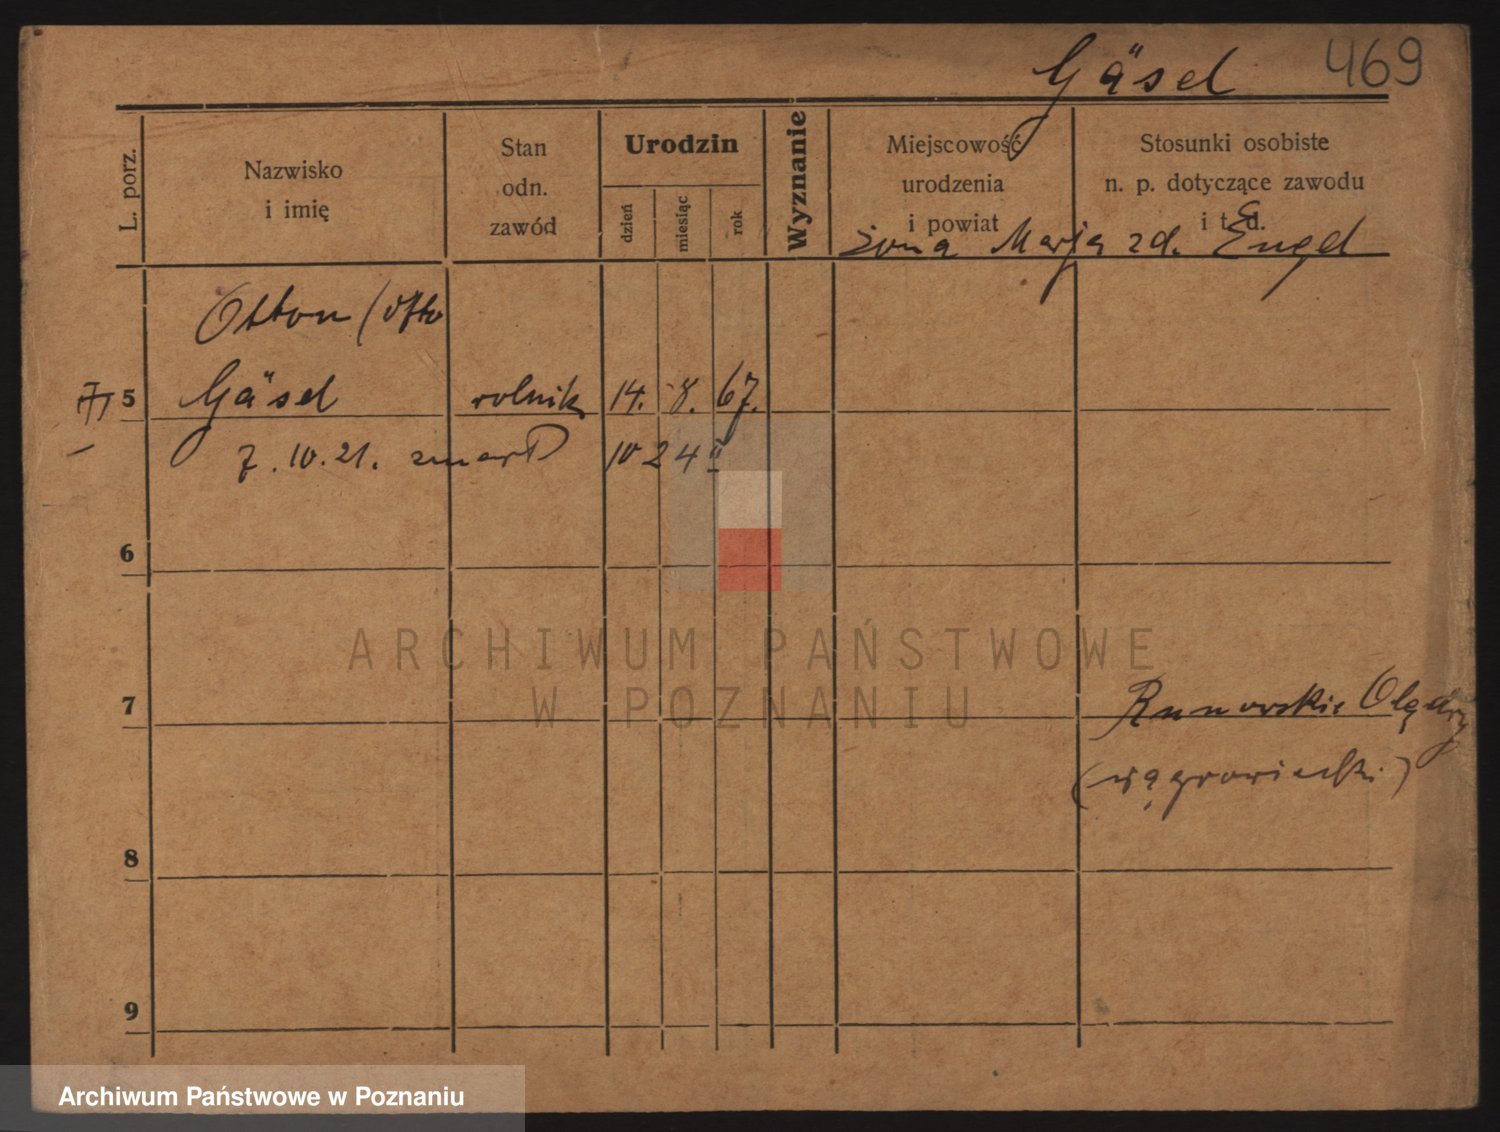 Gäsel 469
L. porz.
Nazwisko
i imię
Stan
odn.
zawód
Urodzin
dzień
miesiąc
rok
Wyznanie
Miejscowość
urodzenia
i powiat
Stosunki osobiste
n. p. dotyczące zawodu
i t. d.
żona Marja zd. Engel
Otton (Otto
5 Gäsel rolnik 14. 8. 67.
7.10.21. zmarł 10 2 4
6
7 Runowskie Olędry
(wągrowiecki)
8
9
ARCHIWUM PAŃSTWOWE
W POZNANIU
Archiwum Państwowe w Poznaniu